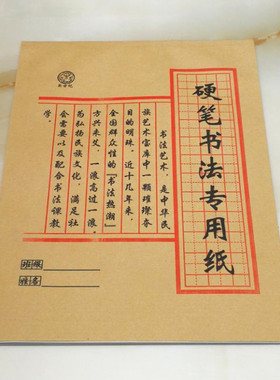 硬笔书法专用纸
书法艺术，是中华民
族艺术宝库中一颗璀璨夺
目的明珠，近十几年来，
全国群众性的『书法热潮』
方兴未艾，一浪高过一浪，
为弘扬民族文化，满足社
会需要以及配合书法课教
学。
班级
姓名